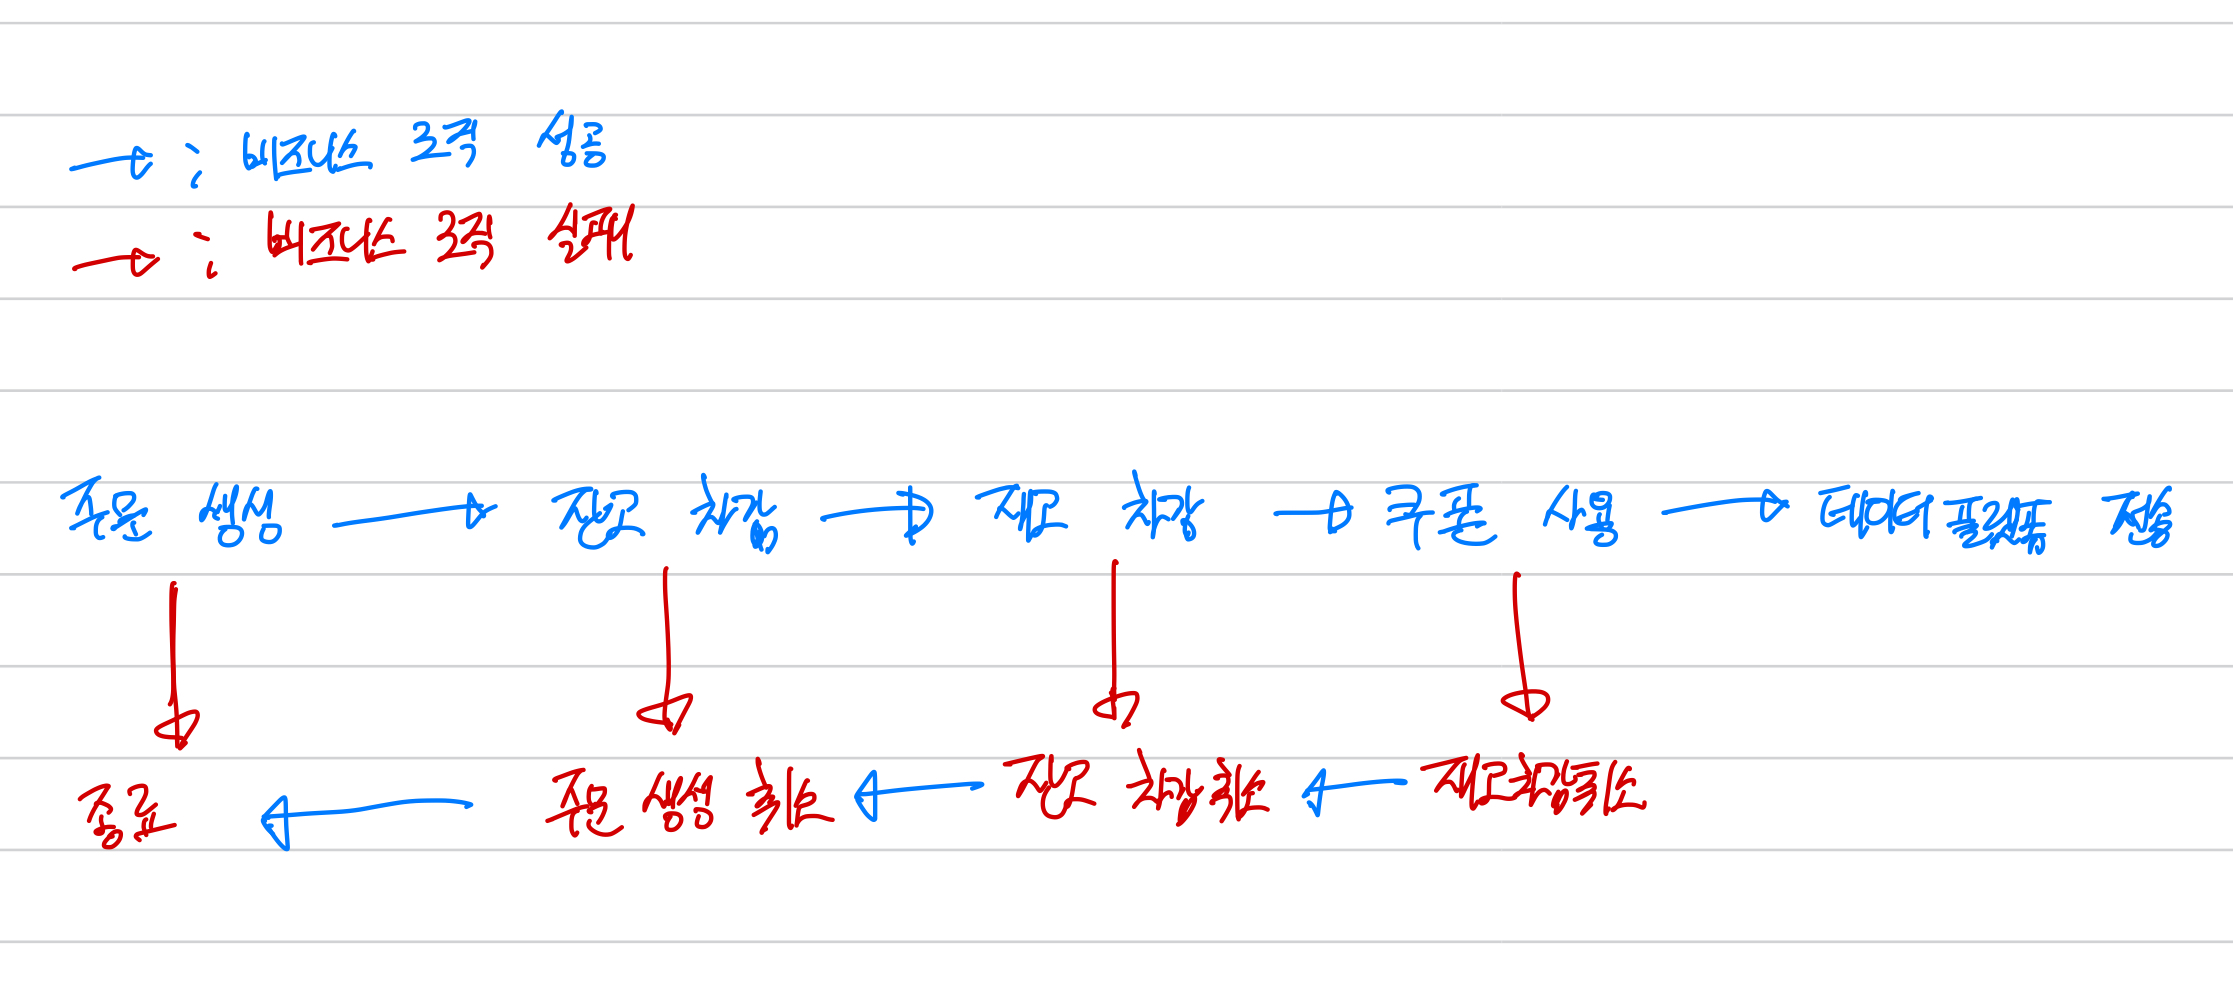 → : 비즈니스 로직 성공
→ : 비즈니스 로직 실패
주문 생성 → 잔고 차감 → 재고 차감 → 쿠폰 사용 → 데이터 플랫폼 전송
종료 ← 주문 생성 취소 ← 잔고 차감 취소 ← 재고 차감 취소